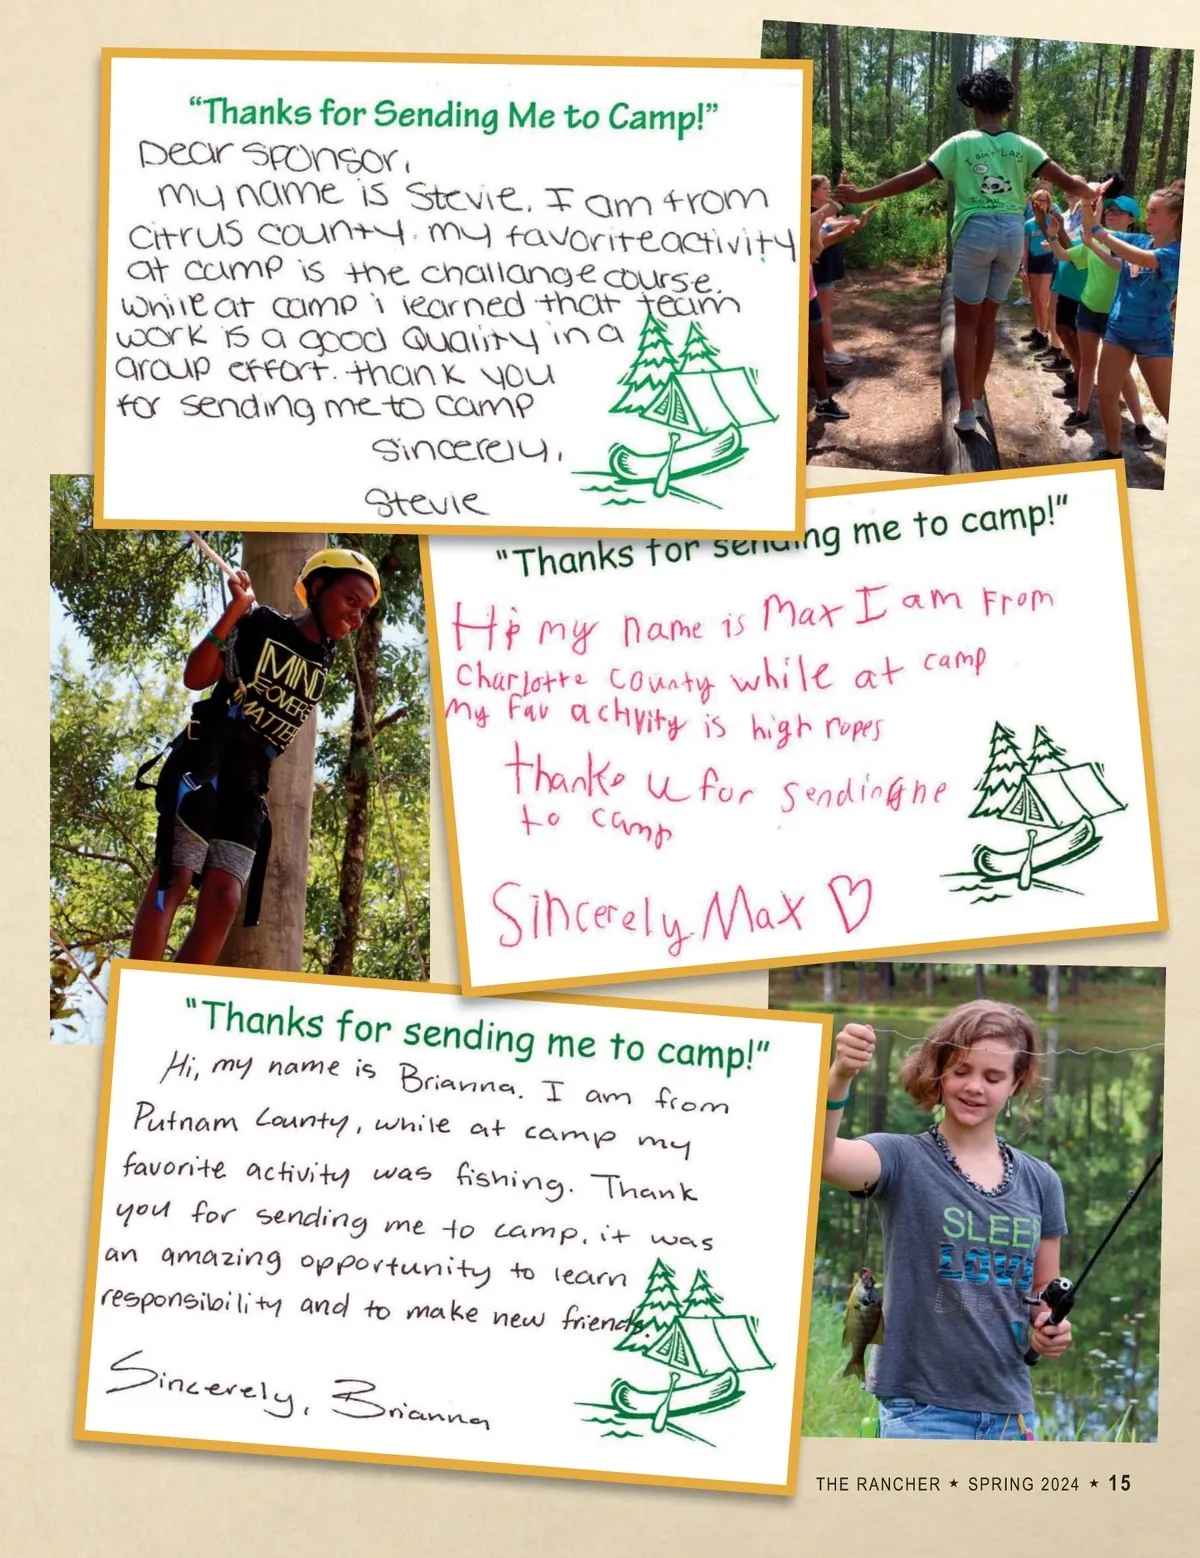 "Thanks for Sending Me to Camp!"
Dear Sponsor,
my name is Stevie. I am from
Citrus county. my favorite activity
at camp is the challange course.
while at camp i learned that team
work is a good Quality in a
group effort. thank you
for sending me to camp
Sincerely,
Stevie
I ain't Lazy
"Thanks for sending me to camp!"
Hi my name is Max I am From
Charlotte county while at camp
My Fav activity is high ropes
thanks u for sending me
to camp
Sincerely Max
MIND
OVER
MATTER
"Thanks for sending me to camp!"
Hi, my name is Brianna. I am from
Putnam County, while at camp my
favorite activity was fishing. Thank
you for sending me to camp, it was
an amazing opportunity to learn
responsibility and to make new friends.
Sincerely, Brianna
SLEEP
LOVE
THE RANCHER ★ SPRING 2024 ★ 15